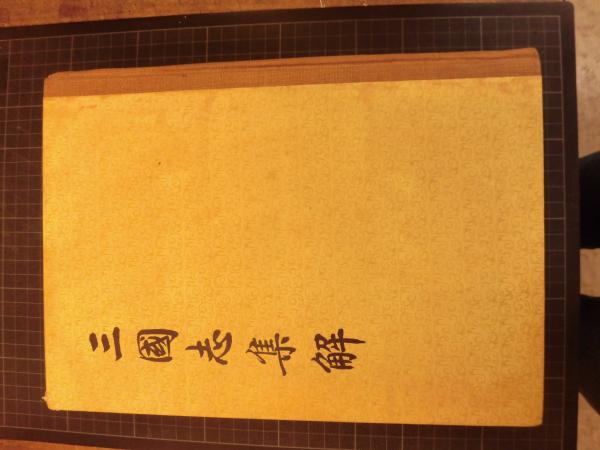 三國志集解